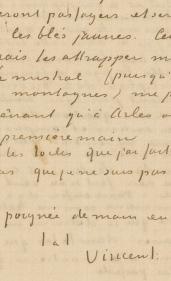 seront partagers, et ser
les blés jaunes. Ce
rais les attrapper m
mistral (puisqu
montagnes) me p
ênant qu'à Arles o
première main
les toiles que j'ai fait
as que je ne suis pas
poignée de main en
t à t
Vincent.